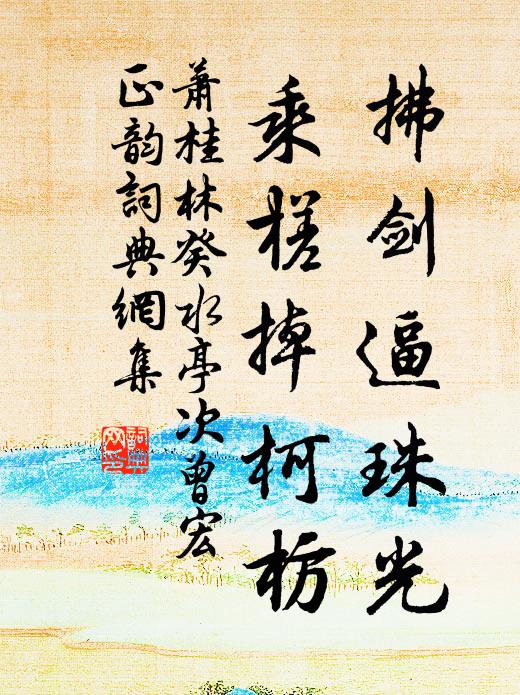 拂剑逼珠光
乘槎掉柯枋
萧桂林癸水亭次曾宏
正韵詞典網集